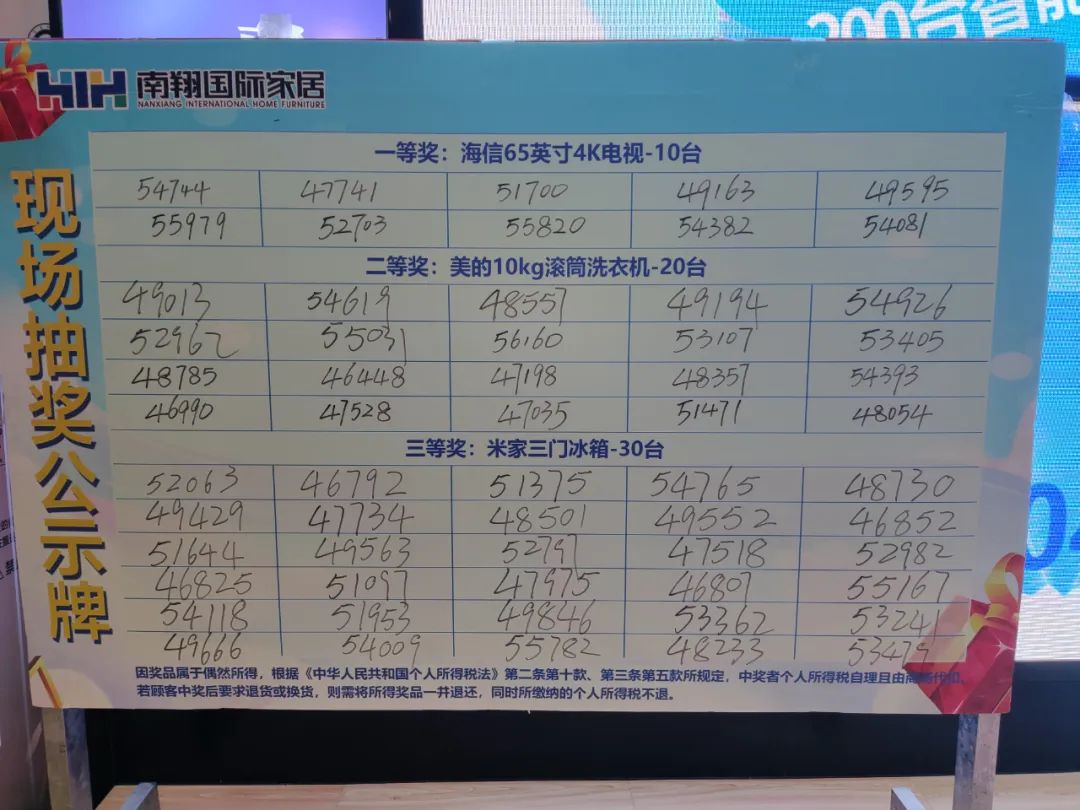 200台智能
南翔国际家居
NANXIANG INTERNATIONAL HOME FURNITURE
现场抽奖公示牌
一等奖：海信65英寸4K电视-10台
54744 47741 51700 49163 49595
55979 52703 55820 54382 54081
二等奖：美的10kg滚筒洗衣机-20台
49013 54619 48557 49194 54926
52962 55031 56160 53107 53405
48785 46448 47198 48357 54393
46990 47528 47035 51471 48054
三等奖：米家三门冰箱-30台
52063 46792 51375 54765 48730
49429 47734 48501 49552 46852
51644 49563 52797 47518 52982
46825 51097 47975 46807 55167
54118 51953 49846 53362 53241
49666 54009 55782 48233 53479
因奖品属于偶然所得，根据《中华人民共和国个人所得税法》第二条第十款、第三条第五款所规定，中奖者个人所得税自理且由商场代扣。
若顾客中奖后要求退货或换货，则需将所得奖品一并退还，同时所缴纳的个人所得税不退。